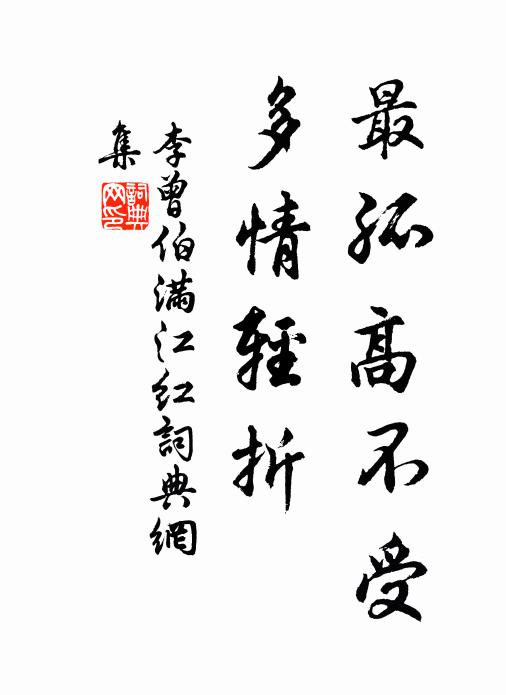 最孤高不受
多情輕折
李曾伯满江红詞典網
集
詞典网印